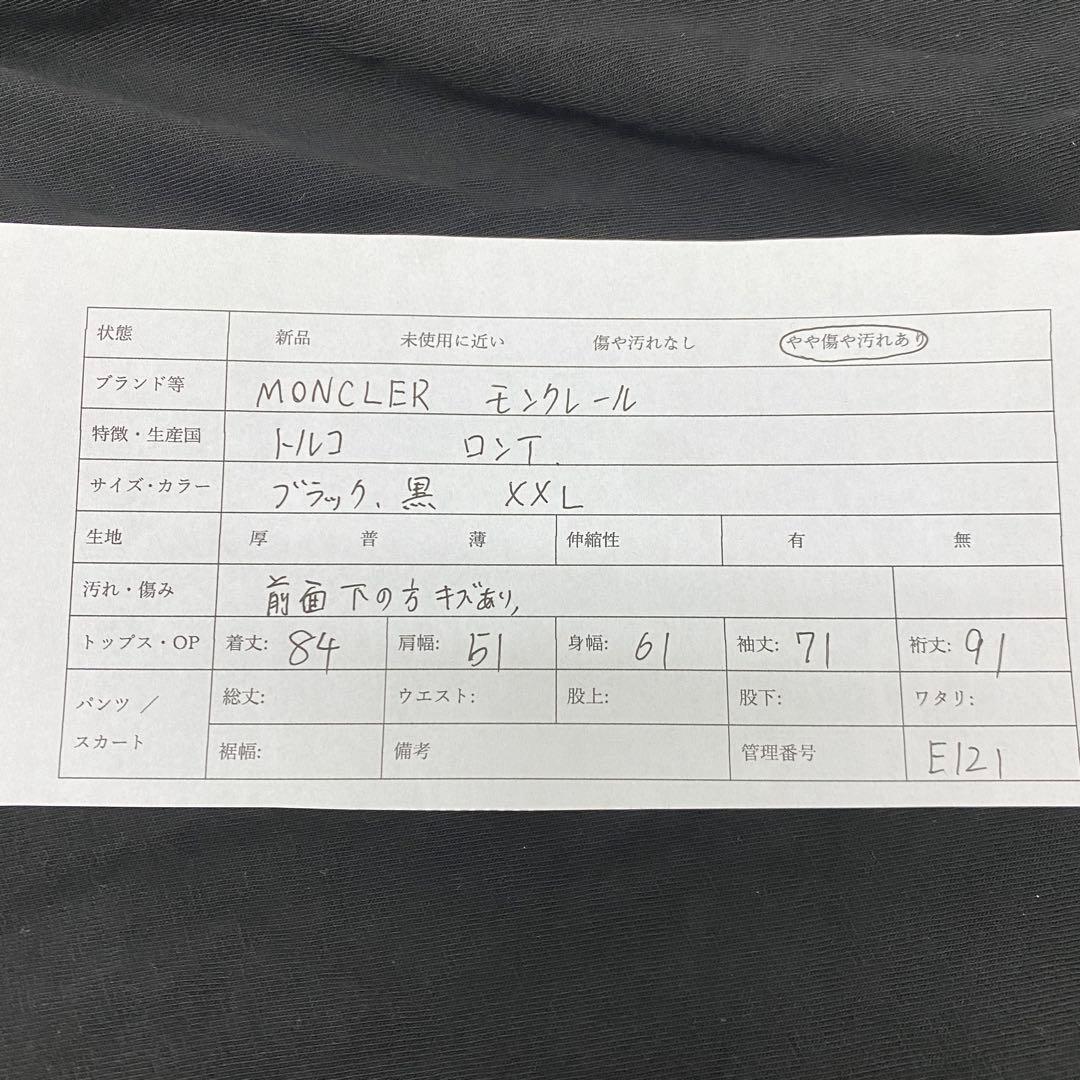 状態 新品 未使用に近い 傷や汚れなし やや傷や汚れあり
ブランド等 MONCLER モンクレール
特徴・生産国 トルコ ロンT.
サイズ・カラー ブラック、黒 XXL
生地 厚 普 薄 伸縮性 有 無
汚れ・傷み 前面下の方キズあり,
トップス・OP 着丈: 84 肩幅: 51 身幅: 61 袖丈: 71 裄丈: 91
パンツ／ 総丈: ウエスト: 股上: 股下: ワタリ:
スカート 裾幅: 備考 管理番号 E121